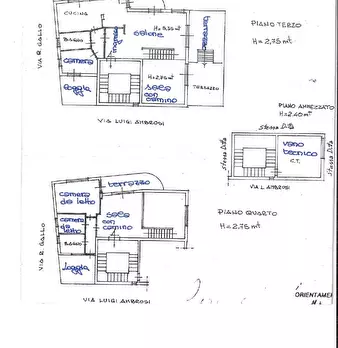 CUCINA
H=3,35 mt
salone
PIANO TERZO
H = 2,75 mt
BAGNO
camera
loggia
H=2,75 mt
sala con camino
TERRAZZO
VIA R. GALLO
VIA LUIGI AMBROSI
PIANO AMMEZZATO
H=2.40 mt
Stessa Ditta
Stessa Ditta
vano tecnico
C.T.
Stessa Ditta
VIA L. AMBROSI
terrazzo
camera da letto
sala con camino
PIANO QUARTO
H = 2,75 mt
camera da letto
BAGNO
loggia
VIA R. GALLO
VIA LUIGI AMBROSI
ORIENTAMEN